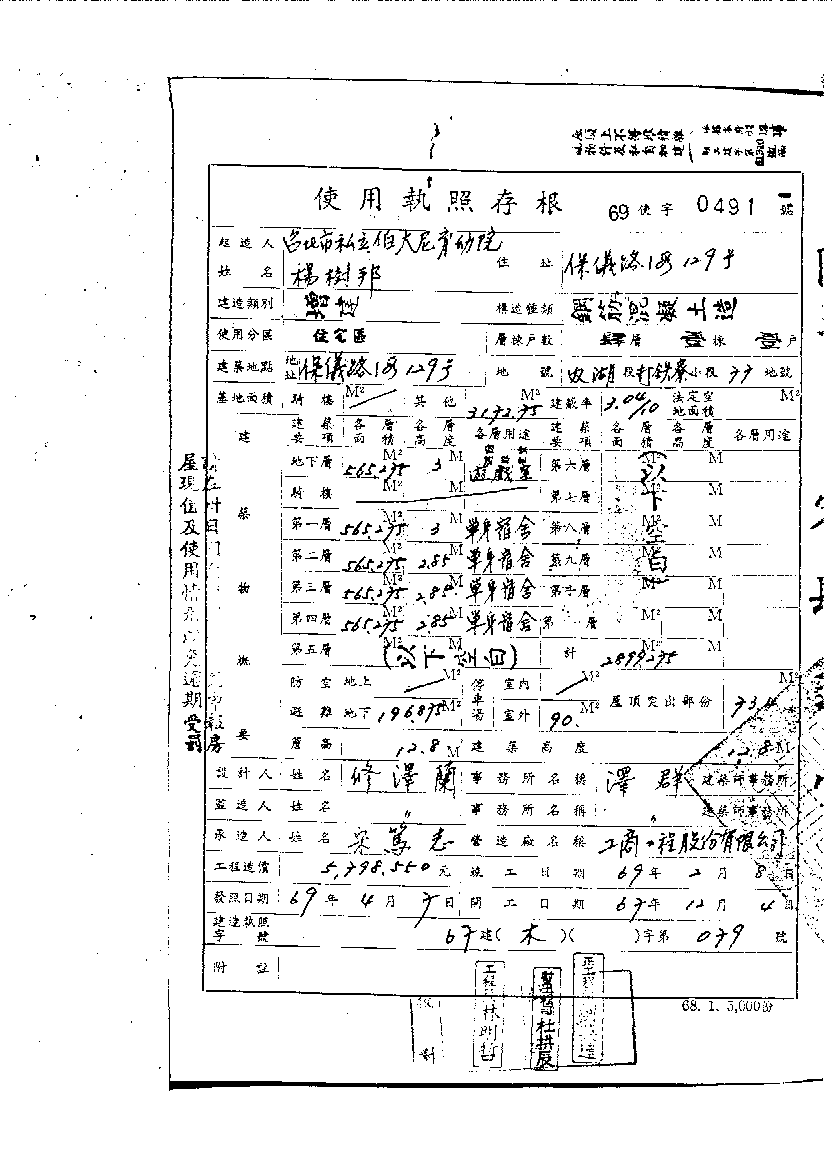 使用執照存根 69使字 0491 號
起造人 台北市私立伯大尼育幼院
姓名 楊樹邦 住址 保儀路1段129号
建造類別 增建 構造種類 鋼筋混凝土造
使用分區 住宅區 層棟戶數 層 棟 戶
建築地點 地址 保儀路1段129号 地號 內湖段打鉄寮小段77地號
基地面積 騎樓 M² 其他 3172.75 M² 建蔽率 3.04/10 法定空地面積 M²
建築物概要
建築要項 各層面積 各層高度 各層用途 建築要項 各層面積 各層高度 各層用途
地下層 565.275 M² 3 M 遊戲室 第六層 M² M
騎樓 M² M 第七層 M² M
第一層 565.275 M² 3 M 單身宿舍 第八層 M² M
第二層 565.275 M² 2.85 M 單身宿舍 第九層 M² M
第三層 565.275 M² 2.85 M 單身宿舍 第十層 M² M
第四層 565.275 M² 2.85 M 單身宿舍 第 層 M² M
(以下空白)
第五層 M² M (以下空白) 計 2899.275 M² M
防空 地上 M² 停車場 室內 M² 屋頂突出部份 73.4 M²
避難 地下 196.875 M² 室外 90. M²
簷高 12.8 M 建築高度 12.8 M
設計人 姓名 修澤蘭 事務所名稱 澤群 建築師事務所
監造人 姓名 〃 事務所名稱 〃 建築師事務所
承造人 姓名 宋篤志 營造廠名稱 工商工程股份有限公司
工程造價 5,798,550元 竣工日期 69年2月8日
發照日期 69年4月7日 開工日期 67年12月4日
建造執照字號 67建(木)( )字第079號
附註
68.1.5,000份
工程 林明哲
杜拱辰
校對
屋現住及使用情
逾期受罰